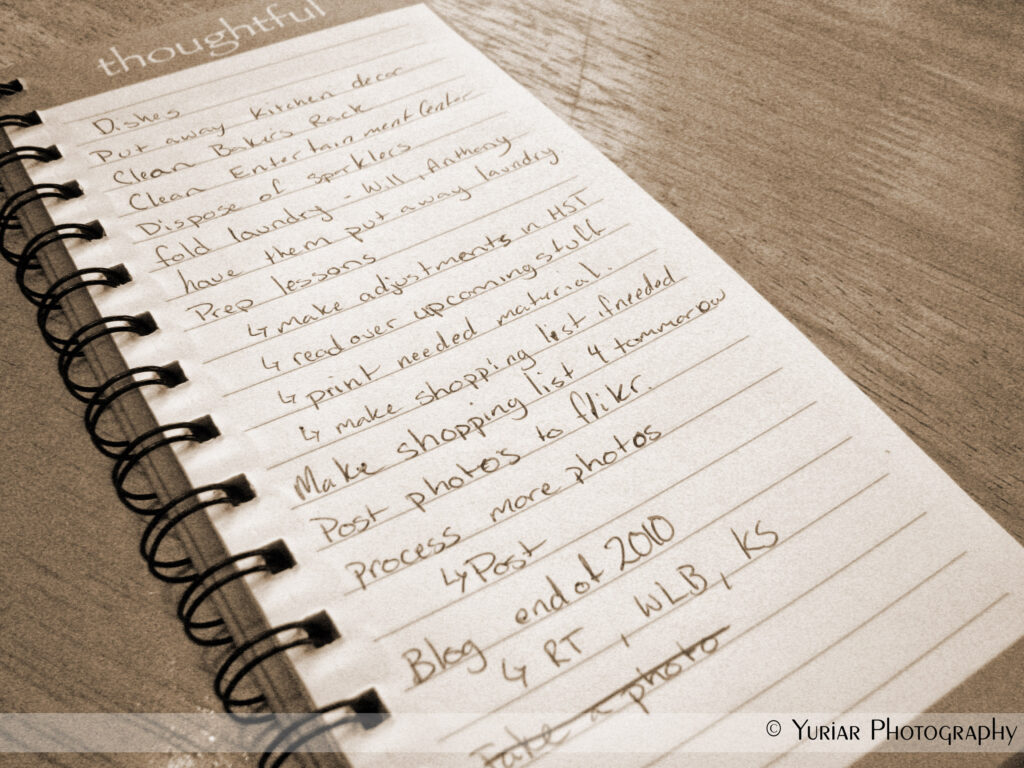 thoughtful
Dishes
Put away kitchen decor
Clean Baker's Rack
Clean Entertainment Center
Dispose of sparklers
fold laundry - Will, Anthony
have them put away laundry.
Prep lessons
↳ make adjustments in HST
↳ read over upcoming stuff
↳ print needed material.
↳ make shopping list if needed
Make shopping list 4 tommarow
Post photos to flikr.
process more photos
↳ Post
Blog end of 2010
↳ RT, WLB, KS
Take a photo
© Yuriar Photography